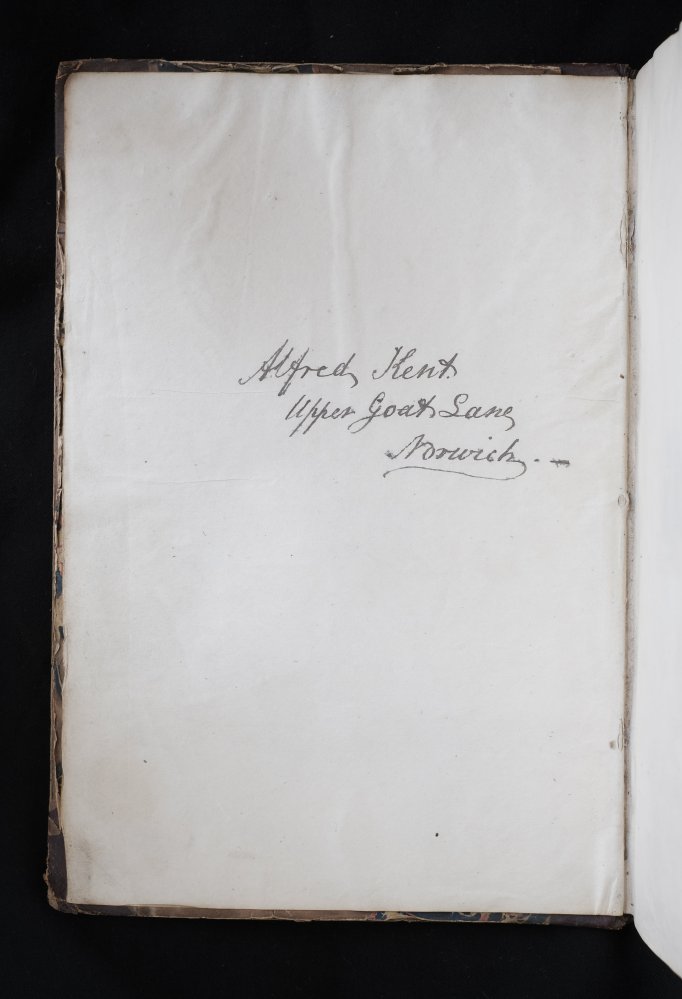 Alfred Kent.
Upper Goat Lane,
Norwich. –